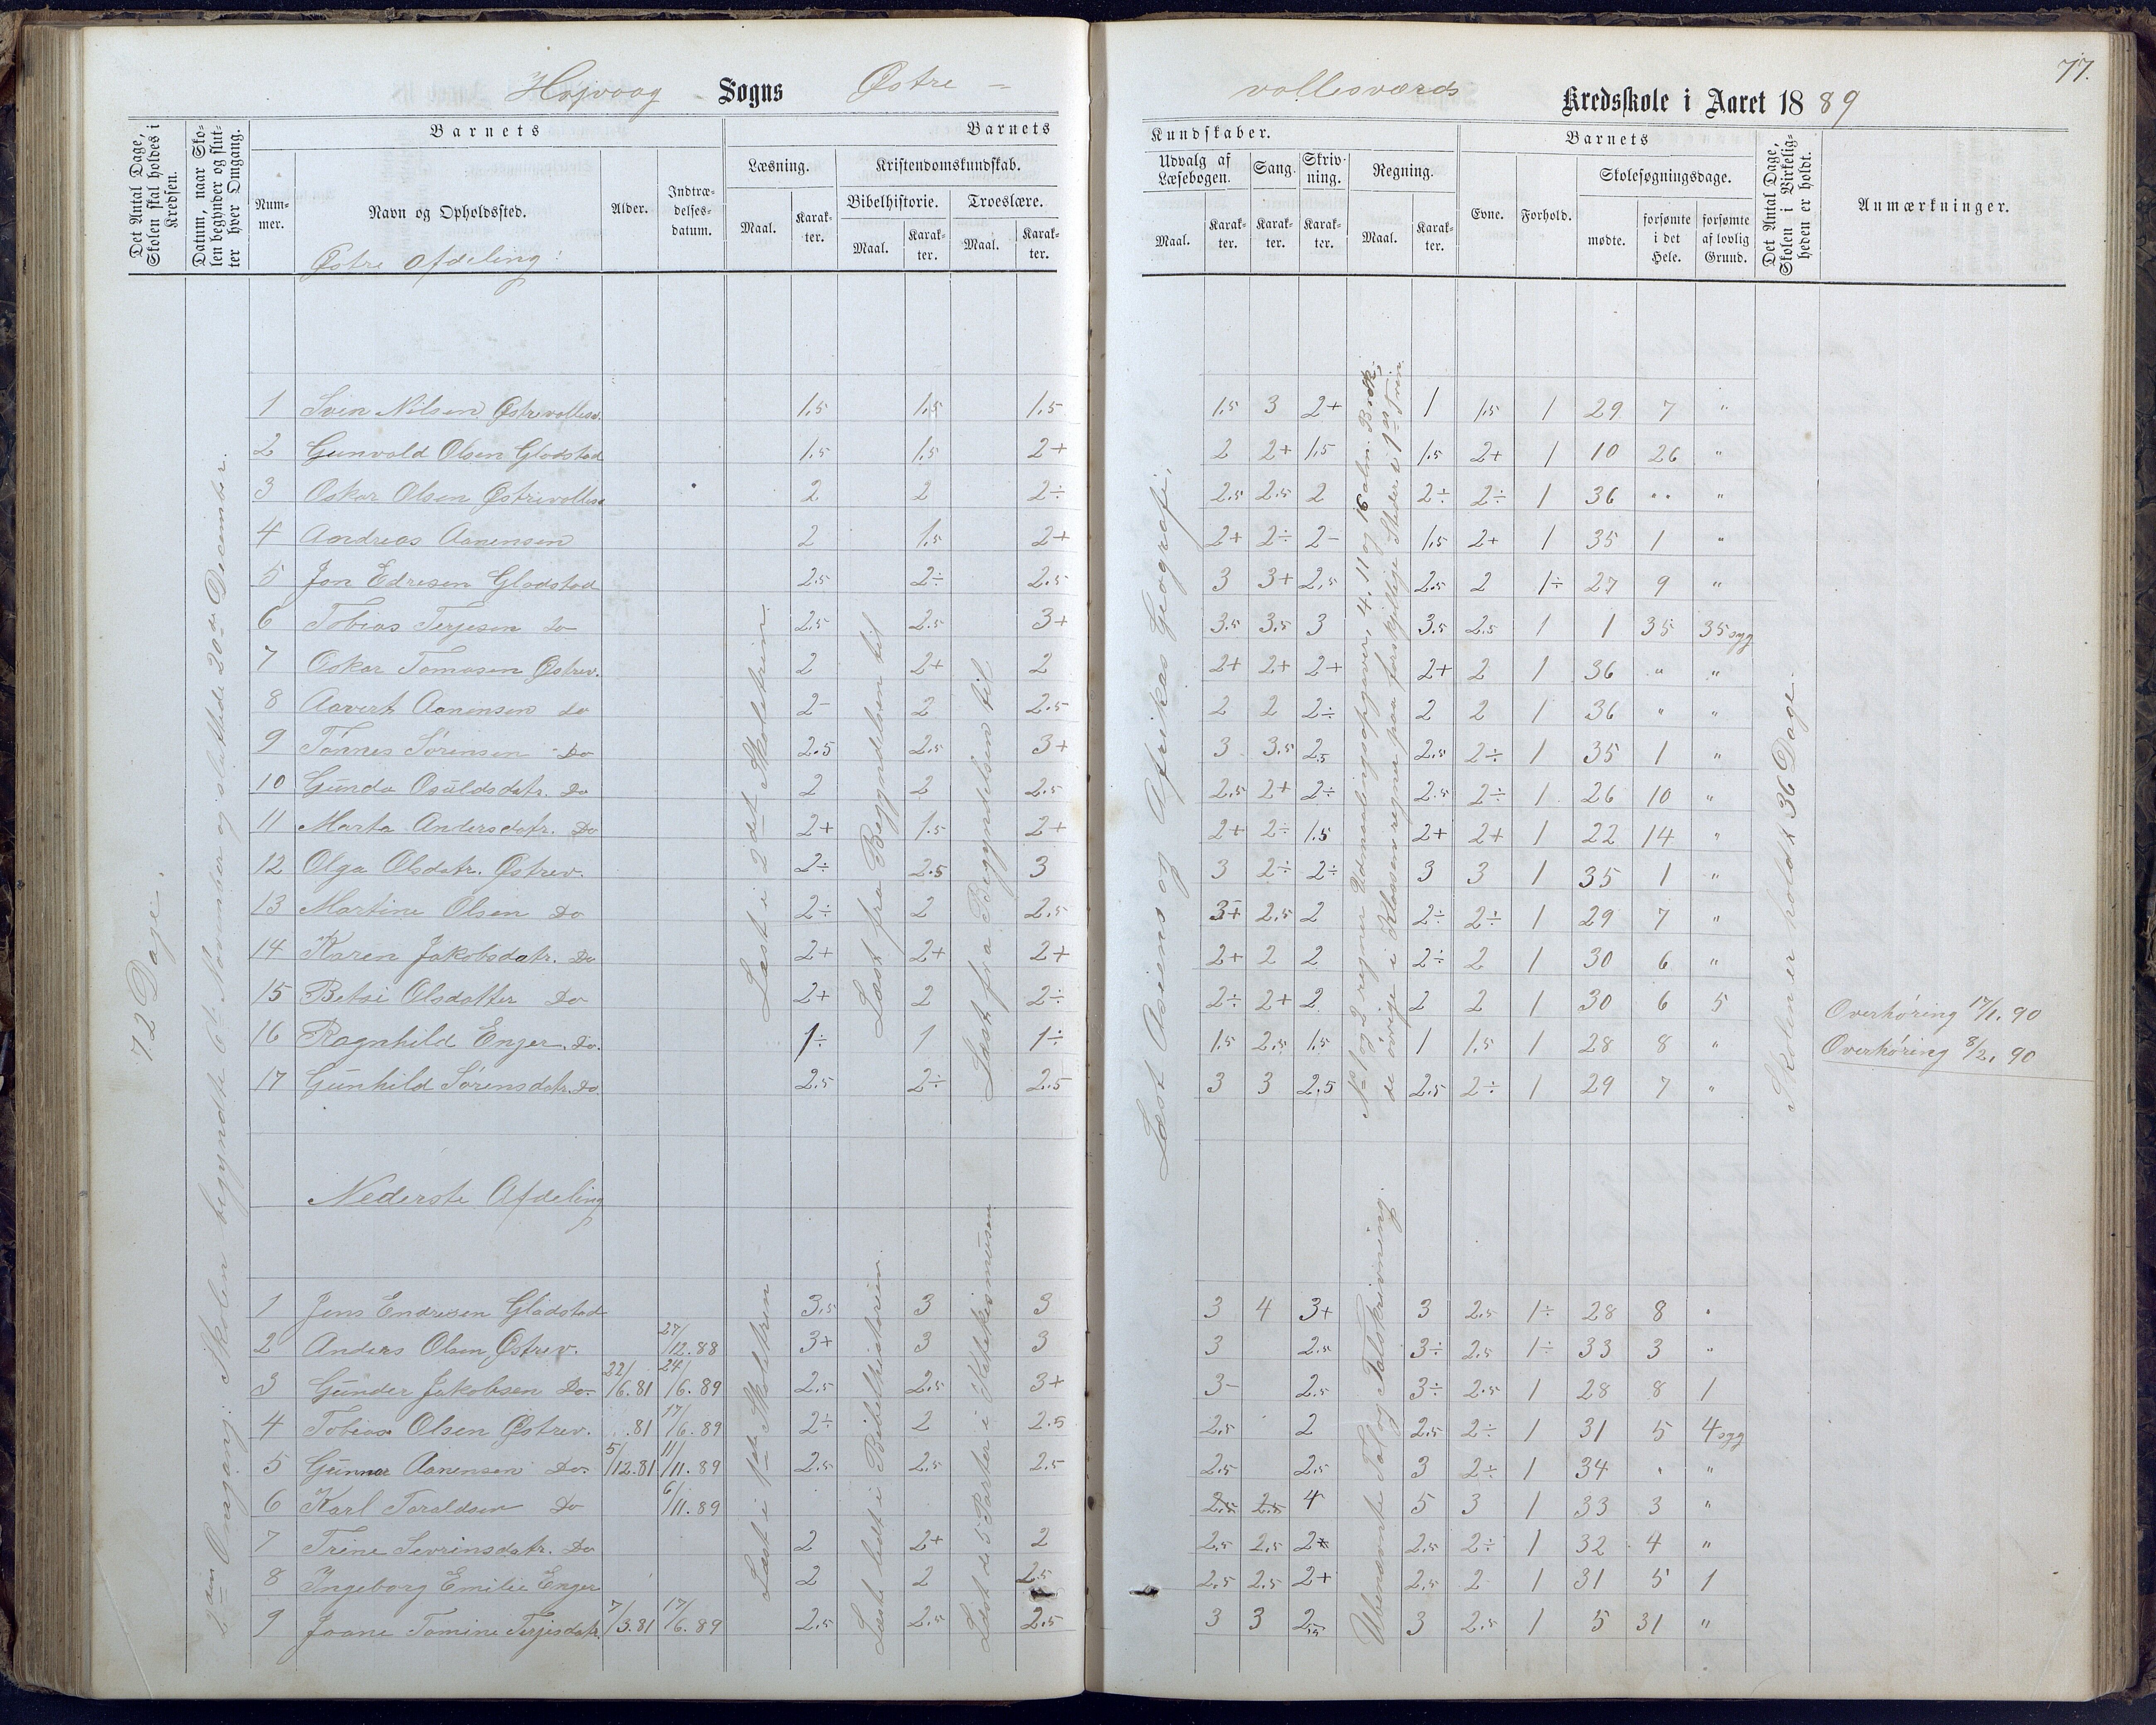 77.
Højvaag Sogns Østre - vollesværds Kredsskole i Aaret 1889
Det Antal Dage, Skolen skal holdes i Kredsen.
Datum, naar Skolen begynder og slutter hver Omgang.
Barnets
Nummer.
Navn og Opholdssted.
Alder.
Indtrædelsesdatum.
Barnets Kundskaber.
Læsning.
Maal.
Karakter.
Kristendomskundskab.
Bibelhistorie.
Maal.
Karakter.
Troeslære.
Maal.
Karakter.
Udvalg af Læsebogen.
Maal.
Karakter.
Sang.
Karakter.
Skrivning.
Karakter.
Regning.
Maal.
Karakter.
Barnets
Evne.
Forhold.
Skolesøgningsdage.
mødte.
forsømte i det Hele.
forsømte af lovlig Grund.
Det Antal Dage, Skolen i Virkeligheden er holdt.
Anmærkninger.
72 Dage.
2den Omgang: Skolen begyndte 6te November og sluttede 20de December.
Østre Afdeling:
Læst i 2det Skoletrin.
Læst fra Begyndelsen til
Læst fra Begyndelsen til
Læst Asiens og Afrikas Geografi.
No 1 og 2 regner Udmaalingsopgaver, 4, 11 og 16 alm. Brøk;
de øvrige i Klassen regner paa forskjellige Steder i 1ste Trin.
Skolen er holdt 36 Dage.
1 Sven Nilsen Østrevollesv. 1,5 1,5 1,5 1,5 3 2+ 1 1,5 1 29 7 "
2 Gunvald Olsen Gladstad 1,5 1,5 2+ 2 2+ 1,5 1,5 2+ 1 10 26 "
3 Oskar Olsen Østrevollesv 2 2 2÷ 2.5 2.5 2 2÷ 2÷ 1 36 " "
4 Andreas Aanensen 2 1,5 2+ 2+ 2÷ 2- 1,5 2+ 1 35 1 "
5 Jon Edresen Gladstad 2.5 2÷ 2.5 3 3+ 2,5 2.5 2 1÷ 27 9 "
6 Tobias Terjesen Do 2.5 2.5 3+ 3.5 3.5 3 3.5 2.5 1 1 35 35 syg
7 Oskar Tomasen Østrev. 2 2+ 2 2+ 2+ 2+ 2+ 2 1 36 " "
8 Aavert Aanensen do 2- 2 2.5 2 2 2÷ 2 2 1 36 " "
9 Tønnes Sørensen Do 2.5 2.5 3+ 3 3.5 2.5 2.5 2÷ 1 35 1 "
10 Gunda Osuldsdatr. Do 2 2 2.5 2.5 2+ 2÷ 2.5 2÷ 1 26 10 "
11 Marta Andersdatr. Do 2+ 1.5 2+ 2+ 2÷ 1.5 2+ 2+ 1 22 14 "
12 Olga Olsdatr. Østrev. 2÷ 2.5 3 3 2÷ 2÷ 3 3 1 35 1 "
13 Martine Olsen Do 2÷ 2 2.5 3+ 2.5 2 2÷ 2÷ 1 29 7 "
14 Karen Jakobsdatr. Do 2+ 2+ 2+ 2+ 2 2 2÷ 2 1 30 6 "
15 Betsi Olsdatter Do 2+ 2 2÷ 2÷ 2+ 2 2 2 1 30 6 5 Overhøring 17/1. 90
16 Ragnhild Enger. Do. 1÷ 1 1÷ 1.5 2.5 1.5 1 1.5 1 28 8 " Overhøring 8/2. 90
17 Gunhild Sørensdatr. Do. 2.5 2÷ 2.5 3 3 2,5 2.5 2÷ 1 29 7 "
Nederste Afdeling
Læst i 1ste Skoletrin
Læst lidt i Bibelhistorien.
Læst de 5 Parter i Katekismusen
Ubenævnte Tal og Talskrivning.
1 Jens Endresen Gladstad 3,5 3 3 3 4 3+ 3 2.5 1÷ 28 8 "
2 Anders Olsen Østrev. 27/12.88 3+ 3 3 3 2.5 3÷ 2.5 1÷ 33 3 "
3 Gunder Jakobsen Do. 22/6.81 24/6.89 2.5 2.5 3+ 3- 2.5 3÷ 2.5 1 28 8 1
4 Tobias Olsen Østrev. .81 17/6.89 2÷ 2 2.5 2.5 2 2.5 2÷ 1 31 5 4 syg
5 Gunnar Aanensen Do. 5/12.81 11/11.89 2.5 2.5 2.5 2.5 2.5 3 2÷ 1 34 " "
6 Karl Taraldsen Do 6/11.89 2.5 2.5 4 5 3 1 33 3 "
7 Trine Sevrinsdatr. Do 2 2+ 2 2.5 2.5 2+ 2.5 2÷ 1 32 4 "
8 Ingeborg Emilie Enger 2 2 2.5 2.5 2.5 2+ 2.5 2 1 31 5 1
9 Joane Tomine Terjesdatr. 7/3.81 17/6.89 2.5 2.5 2.5 3 3 2.5 3 2.5 1 5 31 "